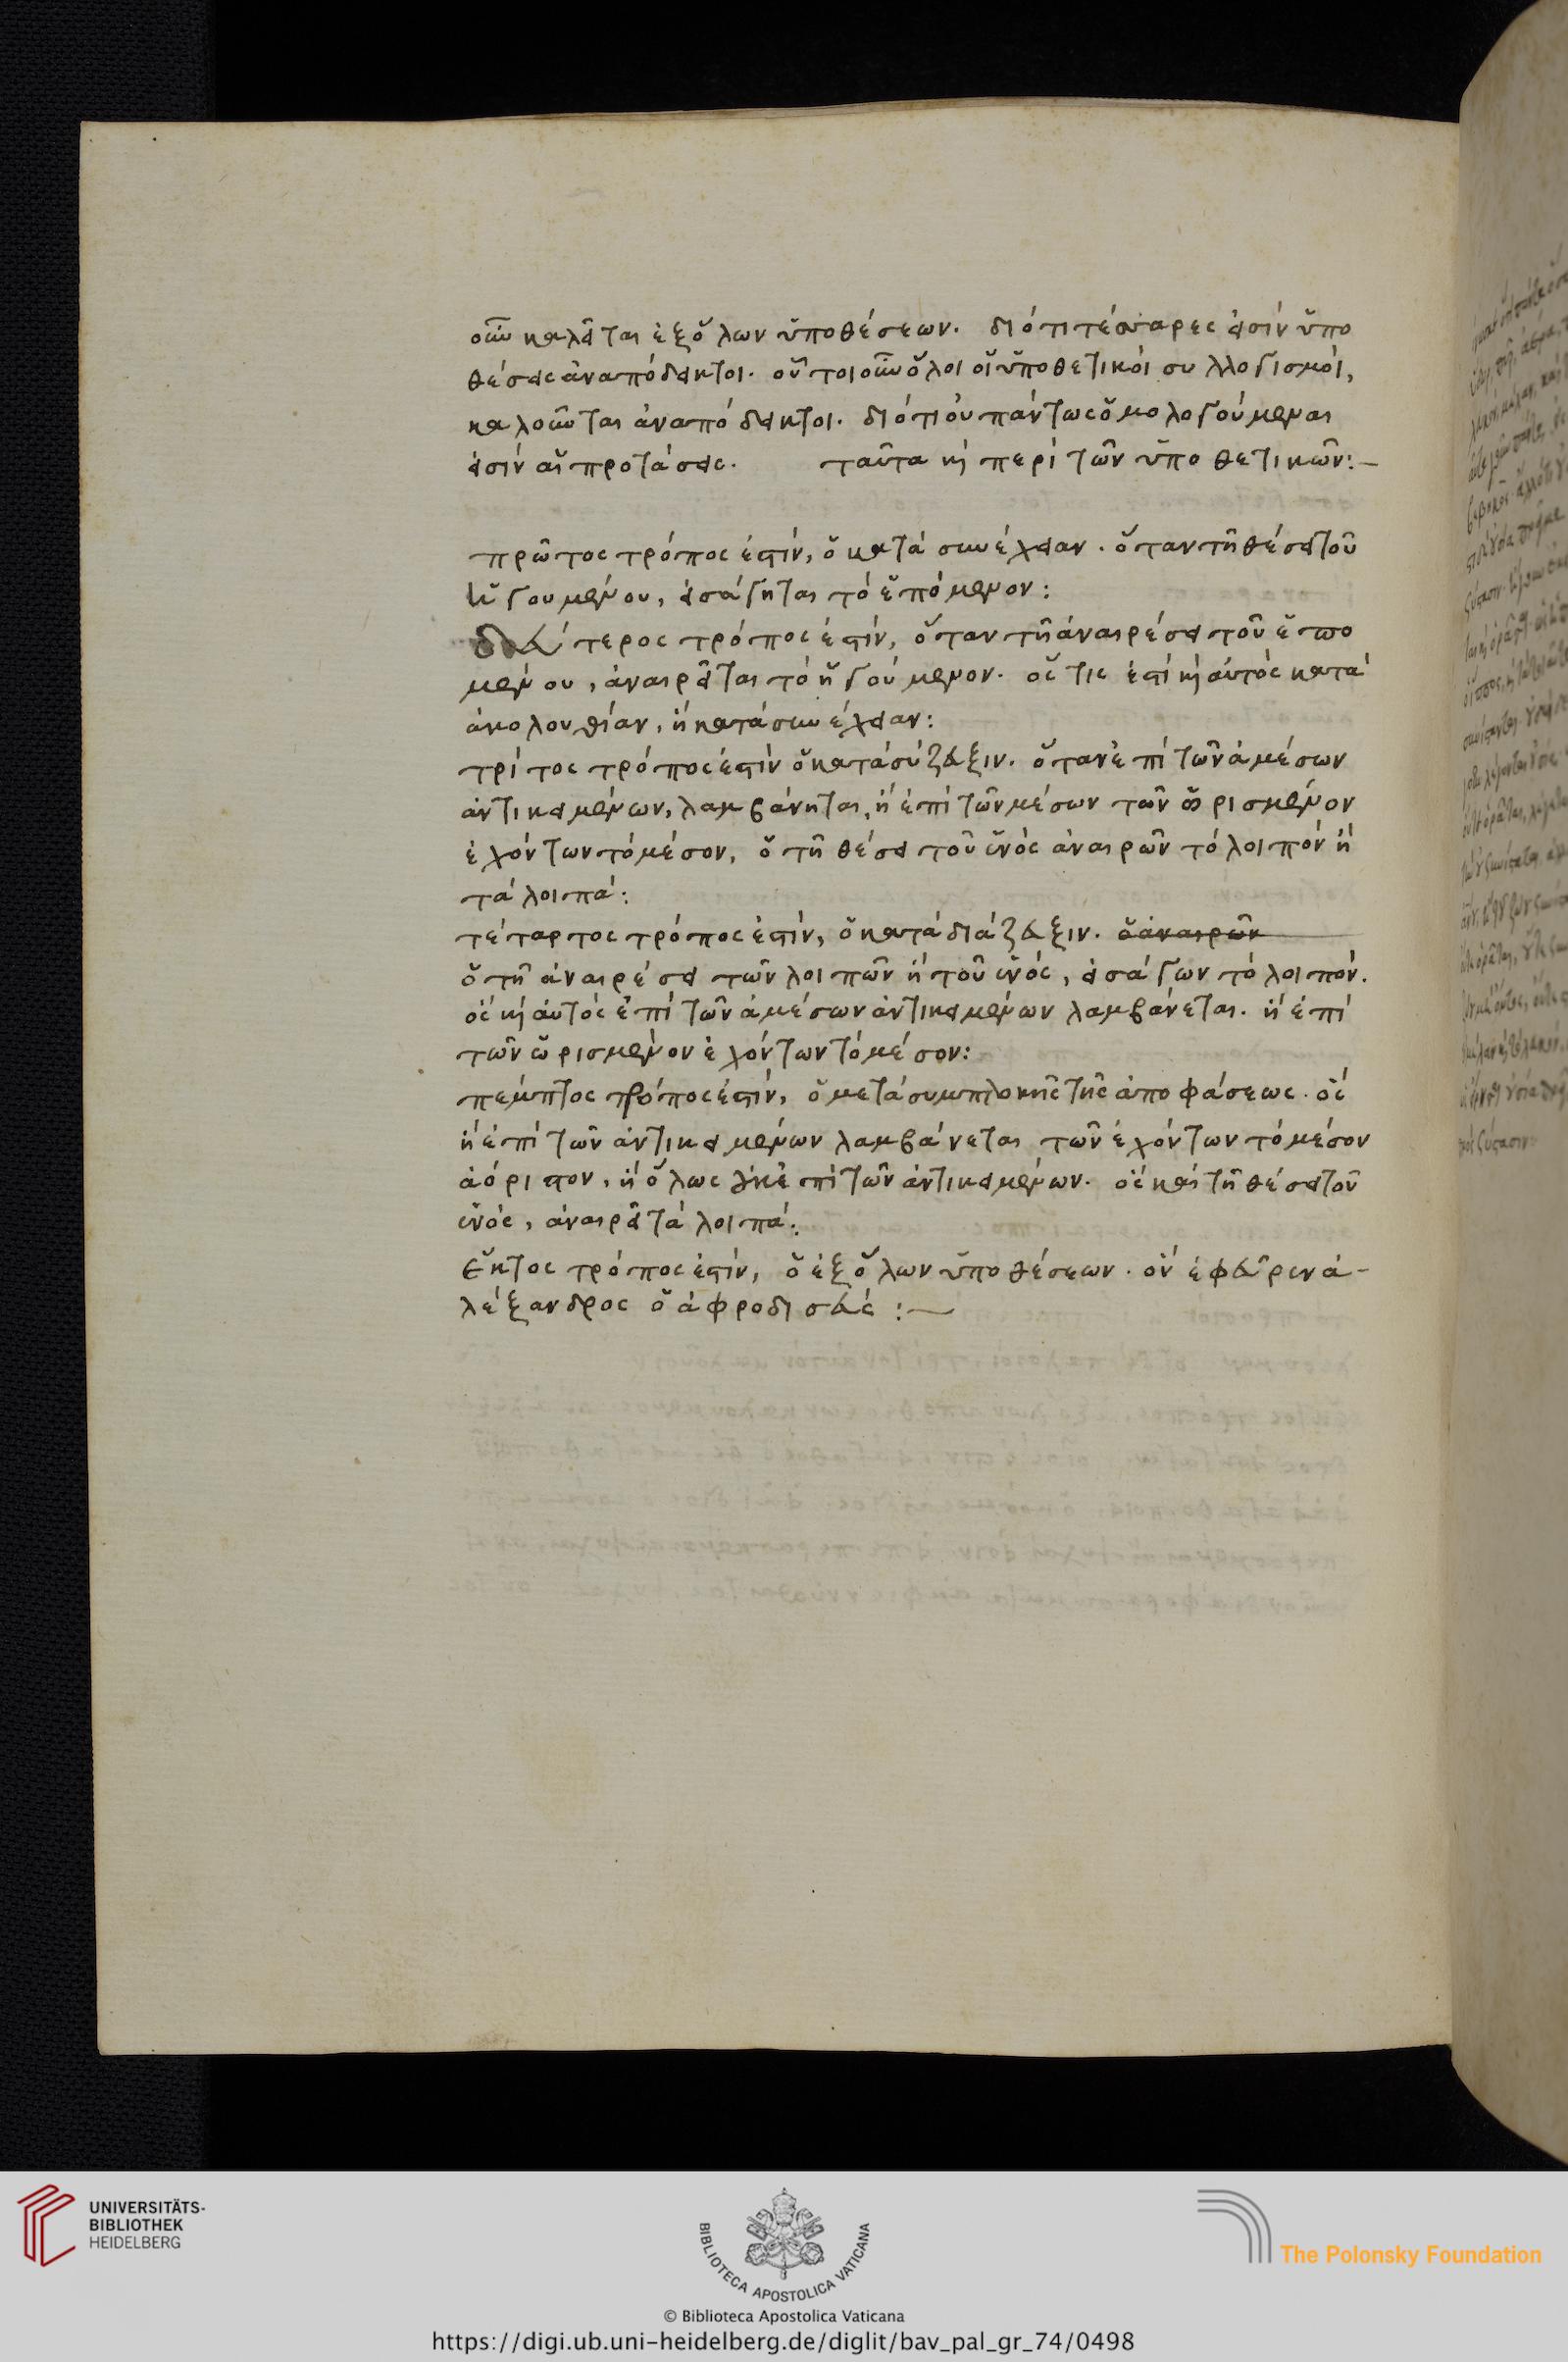 οὖν καλεῖται ἐξ ὅλων ὑποθέσεων. διότι τέσσαρες εἰσὶν ὑπο
θέσεις ἀναπόδεικτοι. οὗτοι οὖν ὅλοι οἱ ὑποθετικοὶ συλλογισμοὶ,
καλοῦνται ἀναπόδεικτοι. διότι οὐ πάντως ὁμολογούμεναι
εἰσὶν αἱ προτάσεις. ταῦτα κὶ περὶ τῶν ὑποθετικῶν:—
πρῶτος τρόπος ἐστὶν, ὁ κατὰ συνέχειαν. ὅταν τῆ θέσει τοῦ
ἡγουμένου, εἰσάγηται τὸ ἑπόμενον:
δεύτερος τρόπος ἐστὶν, ὅταν τῆ ἀναιρέσει τοῦ ἑπο
μένου, ἀναιρεῖται τὸ ἡγούμενον. ὅς τις ἐστὶ κὶ αὐτὸς κατὰ
ἀκολουθίαν, ἢ κατὰ συνέχειαν:
τρίτος τρόπος ἐστὶν ὁ κατὰ σύζευξιν. ὅταν ἐπὶ τῶν ἀμέσων
ἀντικειμένων, λαμβάνηται, ἢ ἐπὶ τῶν μέσων τῶν ὡρισμένον
ἐχόντων τὸ μέσον, ὁ τῆ θέσει τοῦ ἑνὸς ἀναιρῶν τὸ λοιπὸν ἢ
τὰ λοιπά:
τέταρτος τρόπος ἐστὶν, ὁ κατὰ διάζευξιν. ὁ ἀναιρῶν
ὁ τῆ ἀναιρέσει τῶν λοιπῶν ἢ τοῦ ἑνὸς, εἰσάγων τὸ λοιπόν.
ὃς κὶ αὐτὸς ἐπὶ τῶν ἀμέσων ἀντικειμένων λαμβάνεται. ἢ ἐπὶ
τῶν ὡρισμένον ἐχόντων τὸ μέσον:
πέμπτος τρόπος ἐστὶν, ὁ μετὰ συμπλοκῆς τῆς ἀποφάσεως. ὃς
ἢ ἐπὶ τῶν ἀντικειμένων λαμβάνεται τῶν ἐχόντων τὸ μέσον
ἀόριστον, ἢ ὅλως ἐπὶ τῶν ἀντικειμένων. ὃς καὶ τῆ θέσει τοῦ
ἑνὸς, ἀναιρεῖ τὰ λοιπά:
ἕκτος τρόπος ἐστὶν, ὁ ἐξ ὅλων ὑποθέσεων. ὃν ἐφεῦρεν ἀ-
λέξανδρος ὁ ἀφροδισεύς:—
UNIVERSITÄTS-
BIBLIOTHEK
HEIDELBERG
BIBLIOTECA APOSTOLICA VATICANA
The Polonsky Foundation
© Biblioteca Apostolica Vaticana
https://digi.ub.uni-heidelberg.de/diglit/bav_pal_gr_74/0498